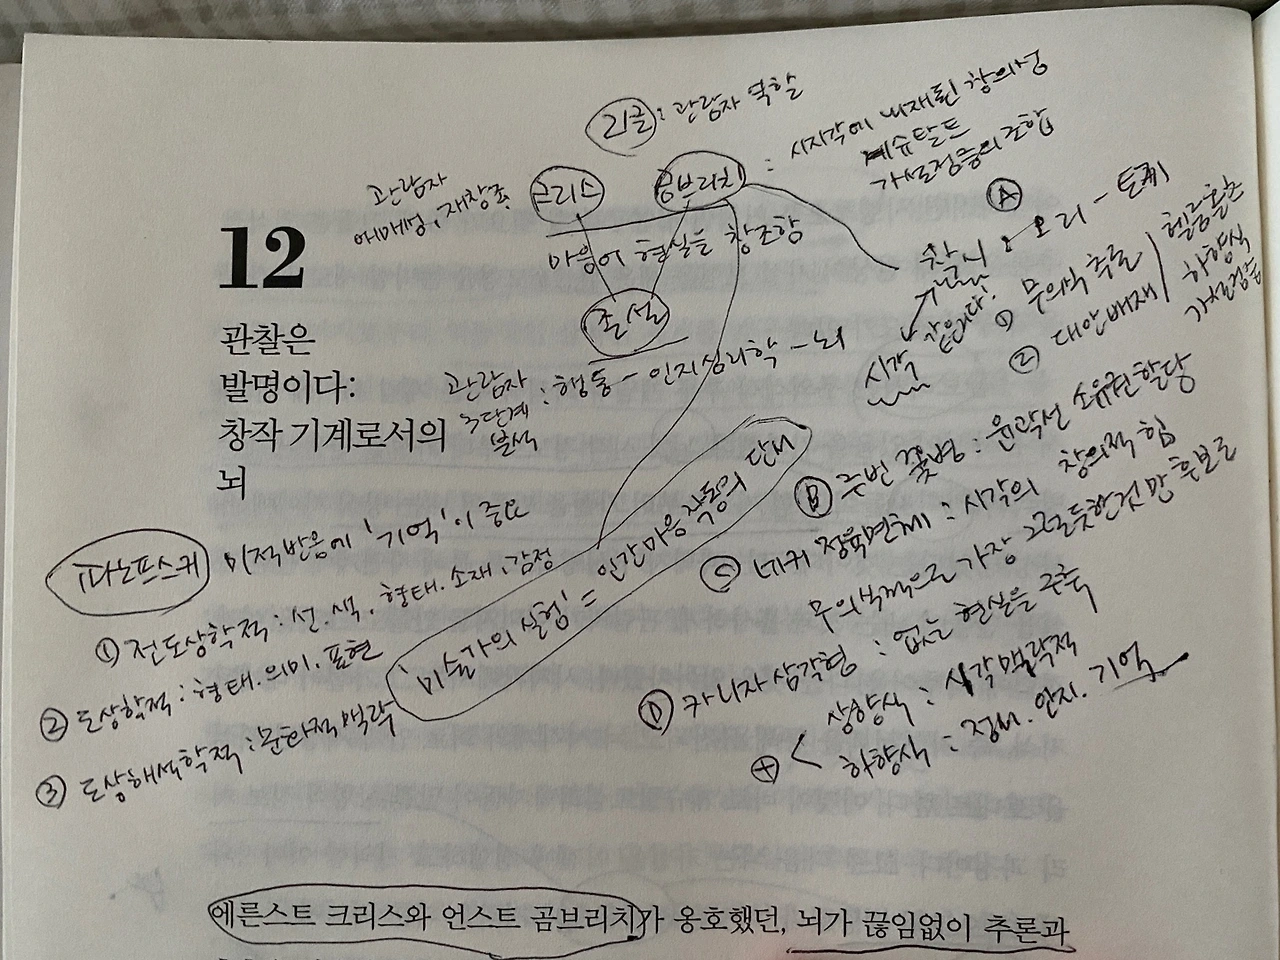 리글 : 관람자 역할
관람자
애매성, 재창조
크리스
곰브리치 : 시지각에 내재된 창의성
게슈탈트
가설검증의 조합
마음이 현실을 창조함
졸설
관람자 : 행동 - 인지심리학 - 뇌
3단계
분석
12
관찰은
발명이다:
창작 기계로서의
뇌
Ⓐ
오리 - 토끼
시각
① 무의식 추론
② 대안 배재
헬름홀츠
하향식
가설검증
Ⓑ 루빈 꽃병 : 윤곽선 소유권 할당
Ⓒ 네커 정육면체 : 시각의 창의적 힘
무의식적으로 가장 그럴듯한것만 후보로
Ⓓ 카니자 삼각형 : 없는 현실을 구축
⊕ < 상향식 : 시각 맥락적
하향식 : 정서. 인지. 기억
'미술가의 실험' = 인간 마음 작동의 단서
파노프스키 미적 반응에 '기억'이 중요
① 전도상학적 : 선. 색. 형태. 소재. 감정
② 도상학적 : 형태. 의미. 표현
③ 도상해석학적 : 문화적 맥락
에른스트 크리스와 언스트 곰브리치가 옹호했던, 뇌가 끊임없이 추론과